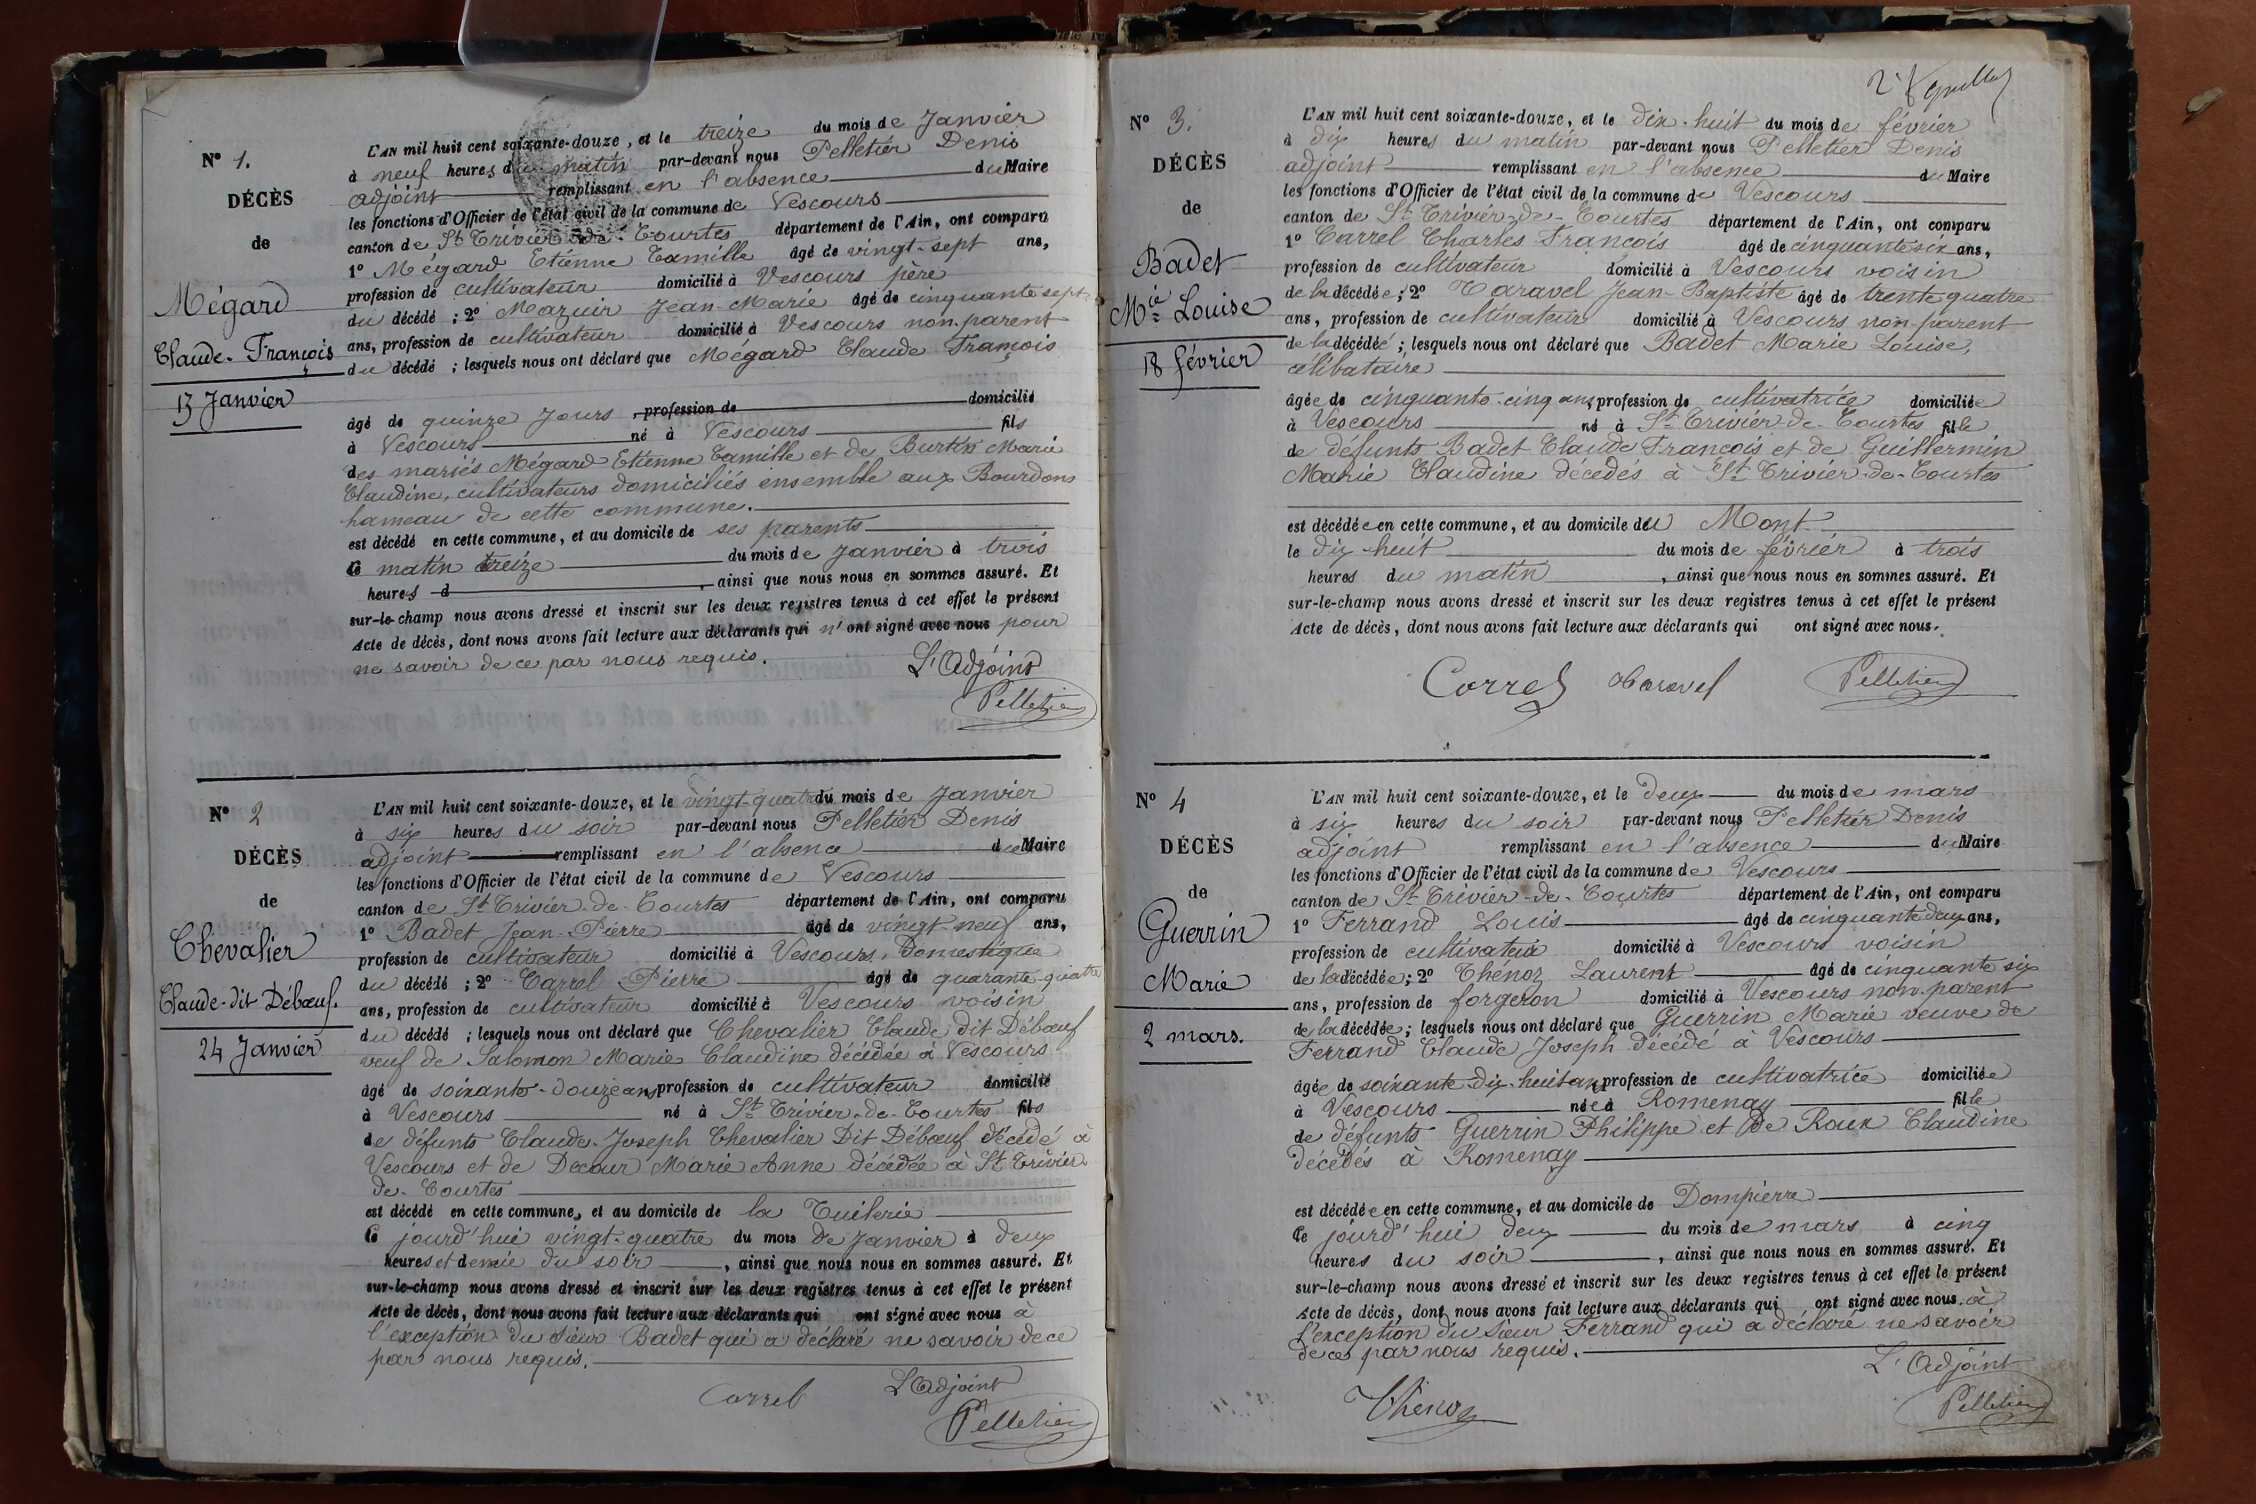 N° 1.
DÉCÈS
de
Mégard
Claude-François
13 Janvier
L'AN mil huit cent soixante-douze, et le treize du mois de Janvier
à neuf heures du matin par-devant nous Pelletier Denis
adjoint remplissant en l'absence du Maire
les fonctions d'Officier de l'état civil de la commune de Vescours
canton de St Trivier-de-Courtes département de l'Ain, ont comparu
1° Mégard Etienne Camille âgé de vingt-sept ans,
profession de cultivateur domicilié à Vescours père
du décédé ; 2° Mazuir Jean-Marie âgé de cinquante sept
ans, profession de cultivateur domicilié à Vescours non-parent
du décédé ; lesquels nous ont déclaré que Mégard Claude François
âgé de quinze Jours profession de domicilié
à Vescours né à Vescours fils
des mariés Mégard Etienne Camille et de Burtin Marie
Claudine, cultivateurs domiciliés ensemble aux Bourdons
hameau de cette commune.
est décédé en cette commune, et au domicile de ses parents
Ce matin treize du mois de Janvier à trois
heures d , ainsi que nous nous en sommes assuré. Et
sur-le-champ nous avons dressé et inscrit sur les deux registres tenus à cet effet le présent
Acte de décès, dont nous avons fait lecture aux déclarants qui n'ont signé avec nous pour
ne savoir de ce par nous requis.
L'Adjoint
Pelletier
N° 2
DÉCÈS
de
Chevalier
Claude-dit Débœuf.
24 Janvier
L'AN mil huit cent soixante-douze, et le vingt-quatre du mois de Janvier
à six heures du soir par-devant nous Pelletier Denis
adjoint remplissant en l'absence du Maire
les fonctions d'Officier de l'état civil de la commune de Vescours
canton de St Trivier-de-Courtes département de l'Ain, ont comparu
1° Badet Jean-Pierre âgé de vingt-neuf ans,
profession de cultivateur domicilié à Vescours, Domestique
du décédé ; 2° Carrel Pierre âgé de quarante-quatre
ans, profession de cultivateur domicilié à Vescours voisin
du décédé ; lesquels nous ont déclaré que Chevalier Claude dit Débœuf
veuf de Salomon Marie Claudine décédée à Vescours
âgé de soixante-douze ans profession de cultivateur domicilié
à Vescours né à St Trivier-de-Courtes fils
de défunts Claude-Joseph Chevalier Dit Débœuf décédé à
Vescours et de Decour Marie Anne décédée à St Trivier-
de-Courtes
est décédé en cette commune, et au domicile de la Tuilerie
Ce jourd'hui vingt-quatre du mois de Janvier à deux
heures et demie du soir , ainsi que nous nous en sommes assuré. Et
sur-le-champ nous avons dressé et inscrit sur les deux registres tenus à cet effet le présent
Acte de décès, dont nous avons fait lecture aux déclarants qui ont signé avec nous à
l'exception du sieur Badet qui a déclaré ne savoir de ce
par nous requis.
Carrel L'Adjoint
Pelletier
2
N° 3.
DÉCÈS
de
Badet
Mie Louise
18 février
L'AN mil huit cent soixante-douze, et le dix-huit du mois de février
à dix heures du matin par-devant nous Pelletier Denis
adjoint remplissant en l'absence du Maire
les fonctions d'Officier de l'état civil de la commune de Vescours
canton de St Trivier-de-Courtes département de l'Ain, ont comparu
1° Carrel Charles François âgé de cinquante six ans,
profession de cultivateur domicilié à Vescours voisin
de la décédée ; 2° Taravel Jean-Baptiste âgé de trente quatre
ans, profession de cultivateur domicilié à Vescours non-parent
de la décédée ; lesquels nous ont déclaré que Badet Marie Louise,
célibataire
âgée de cinquante-cinq ans profession de cultivatrice domiciliée
à Vescours né à St Trivier-de-Courtes fille
de défunts Badet Claude François et de Guillermin
Marie Claudine décédés à St Trivier-de-Courtes
est décédée en cette commune, et au domicile du Mont
le dix-huit du mois de février à trois
heures du matin , ainsi que nous nous en sommes assuré. Et
sur-le-champ nous avons dressé et inscrit sur les deux registres tenus à cet effet le présent
Acte de décès, dont nous avons fait lecture aux déclarants qui ont signé avec nous.
Carrel Taravel Pelletier
N° 4
DÉCÈS
de
Guerrin
Marie
2 mars.
L'AN mil huit cent soixante-douze, et le deux du mois de mars
à six heures du soir par-devant nous Pelletier Denis
adjoint remplissant en l'absence du Maire
les fonctions d'Officier de l'état civil de la commune de Vescours
canton de St Trivier-de-Courtes département de l'Ain, ont comparu
1° Ferrand Louis âgé de cinquante deux ans,
profession de cultivateur domicilié à Vescours voisin
de la décédée ; 2° Thénoz Laurent âgé de cinquante six
ans, profession de forgeron domicilié à Vescours non-parent
de la décédée ; lesquels nous ont déclaré que Guerrin Marie veuve de
Ferrand Claude Joseph décédé à Vescours
âgée de soixante-dix-huit ans profession de cultivatrice domiciliée
à Vescours née à Romenay fille
de défunts Guerrin Philippe et De Roux Claudine
décédés à Romenay
est décédée en cette commune, et au domicile de Dompierre
Ce jourd'hui deux du mois de mars à cinq
heures du soir , ainsi que nous nous en sommes assuré. Et
sur-le-champ nous avons dressé et inscrit sur les deux registres tenus à cet effet le présent
Acte de décès, dont nous avons fait lecture aux déclarants qui ont signé avec nous à
l'exception du sieur Ferrand qui a déclaré ne savoir
de ce par nous requis.
L'Adjoint
Thénoz Pelletier